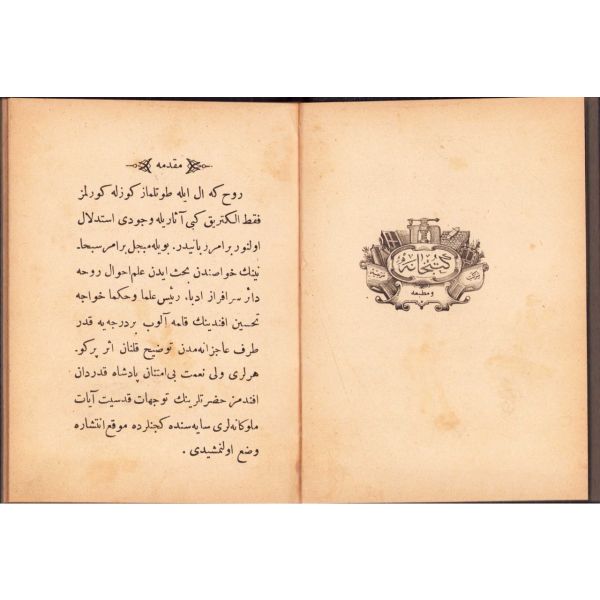 مقدمه
روح که ال ایله طوتلماز کوزله کورلمز
فقط الکتریق کبی آثاریله وجودی استدلال
اولنور بر امر ربانیدر. بویله مبجل بر امر سبحا-
نینك خواصندن بحث ایدن علم احوال روحه
دائر سرافراز ادبا، رئیس علما وحکما خواجه
تحسین افندینك قلمه آلوب بر درجه یه قدر
طرف عاجزانه مدن توضیح قلنان اثر پر کو-
هرلری ولی نعمت بی امتنان پادشاه قدردان
افندمز حضرتلرینك توجهات قدسیت آیات
ملوکانه لری سایه سنده کچنلرده موقع انتشاره
وضع اولنمشیدی .
کتبخانهٔ
شرکت
مرتبیه
ومطبعه